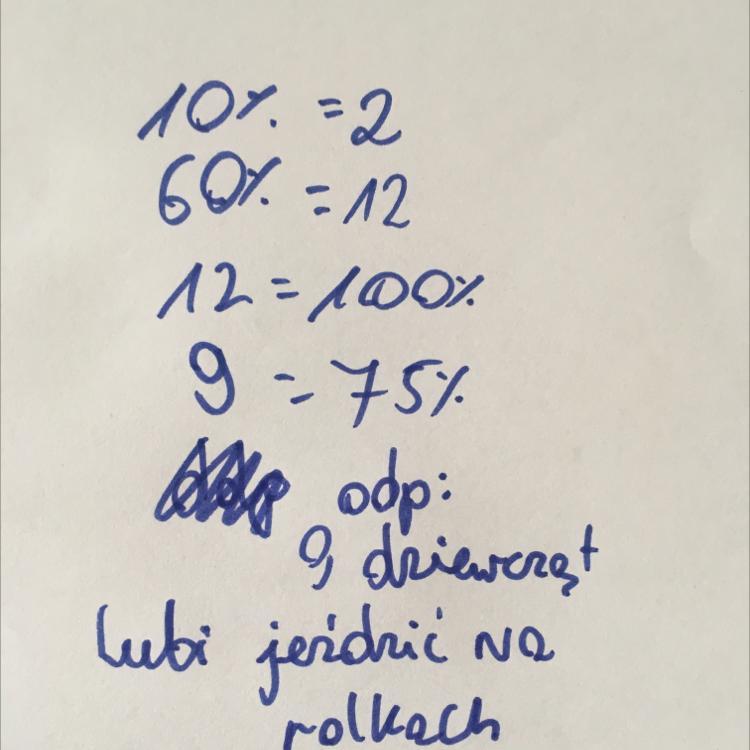 10% = 2
60% = 12
12 = 100%
9 = 75%
odp:
9 dziewcząt
lubi jeździć na
rolkach